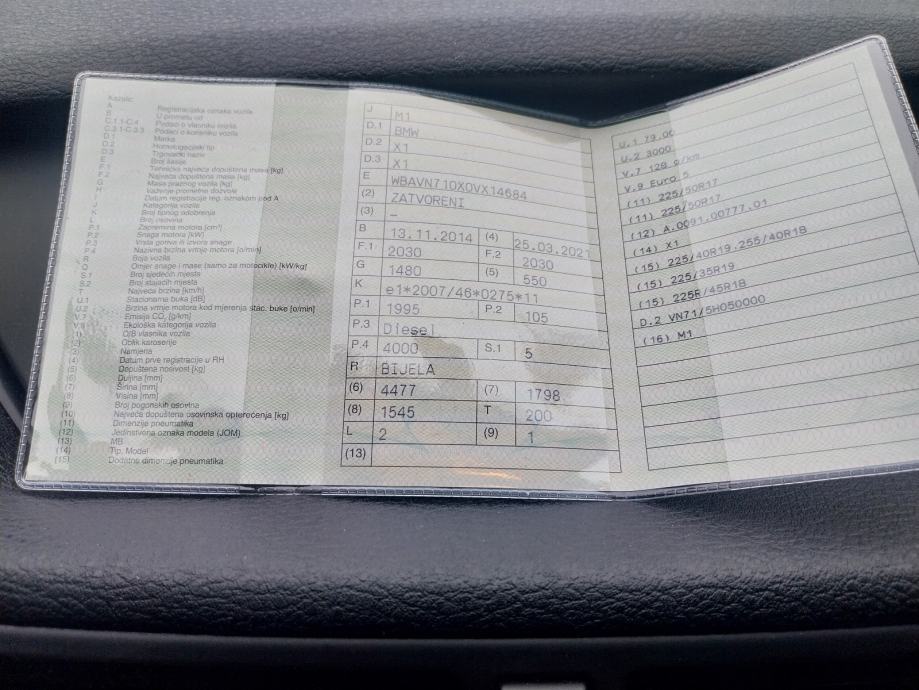 Kazalo:
A Registracijska oznaka vozila
B U prometu od
C.1.1-C.4 Podaci o vlasniku vozila
C.3.1-C.3.3 Podaci o korisniku vozila
D.1 Marka
D.2 Homologacijski tip
D.3 Trgovački naziv
E Broj šasije
F.1 Tehnička najveća dopuštena masa [kg]
F.2 Najveća dopuštena masa [kg]
G Masa praznog vozila [kg]
H Važenje prometne dozvole
I Datum registracije reg. oznakom pod A
J Kategorija vozila
K Broj tipnog odobrenja
L Broj osovina
P.1 Zapremina motora [cm³]
P.2 Snaga motora [kW]
P.3 Vrsta goriva ili izvora snage
P.4 Nazivna brzina vrtnje motora [o/min]
R Boja vozila
Q Omjer snage i mase (samo za motocikle) [kW/kg]
S.1 Broj sjedećih mjesta
S.2 Broj stajaćih mjesta
T Najveća brzina [km/h]
U.1 Stacionarna buka [dB]
U.2 Brzina vrtnje motora kod mjerenja stac. buke [o/min]
V.7 Emisija CO₂ [g/km]
V.9 Ekološka kategorija vozila
(1) OIB vlasnika vozila
(2) Oblik karoserije
(3) Namjena
(4) Datum prve registracije u RH
(5) Dopuštena nosivost [kg]
(6) Duljina [mm]
(7) Širina [mm]
(8) Visina [mm]
(9) Broj pogonskih osovina
(10) Najveća dopuštena osovinska opterećenja [kg]
(11) Dimenzije pneumatika
(12) Jedinstvena oznaka modela (JOM)
(13) MB
(14) Tip, Model
(15) Dodatne dimenzije pneumatika
J M1
D.1 BMW
D.2 X1
D.3 X1
E WBAVN710X0VX14684
(2) ZATVORENI
(3) –
B 13.11.2014 (4) 25.03.2021
F.1 2030 F.2 2030
G 1480 (5) 550
K e1*2007/46*0275*11
P.1 1995 P.2 105
P.3 Diesel
P.4 4000 S.1 5
R BIJELA
(6) 4477 (7) 1798
(8) 1545 T 200
L 2 (9) 1
(13)
U.1 79,00
U.2 3000
V.7 128 g/km
V.9 Euro 5
(11) 225/50R17
(11) 225/50R17
(12) A.0091.00777.01
(14) X1
(15) 225/40R19,255/40R18
(15) 225/35R19
(15) 225R/45R18
D.2 VN71/5H050000
(16) M1